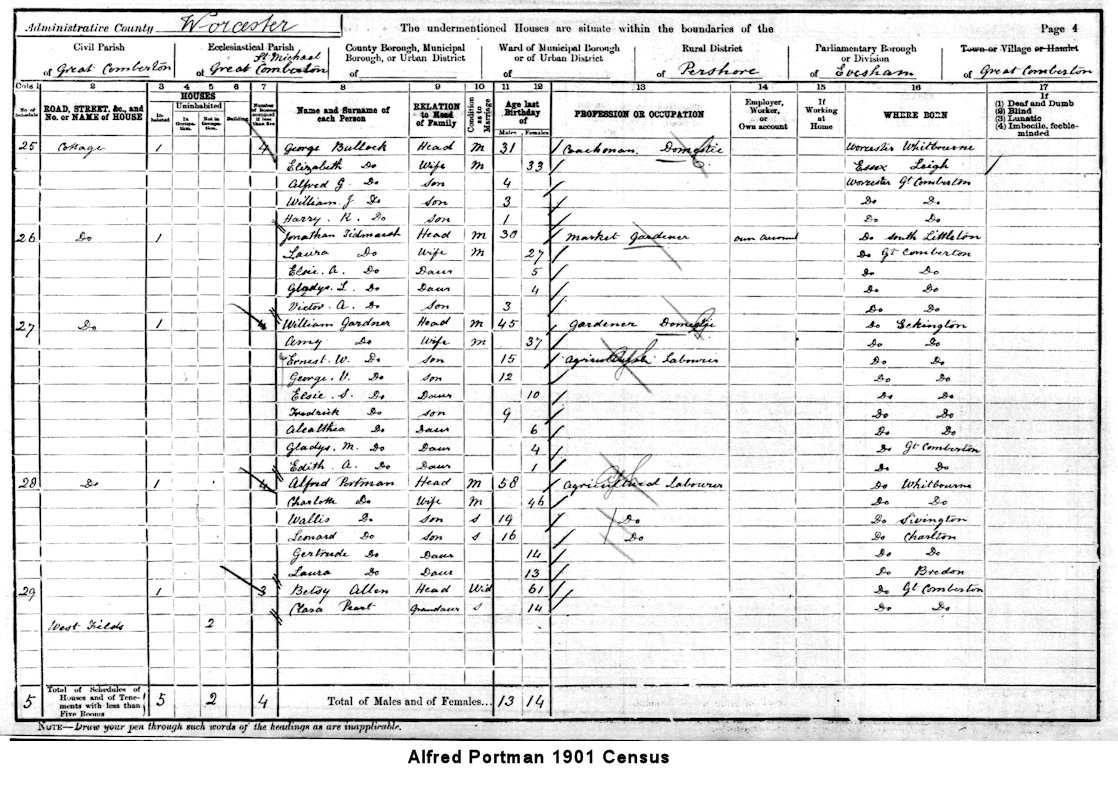 Administrative County Worcester The undermentioned Houses are situate within the boundaries of the Page 4
Civil Parish Ecclesiastical Parish County Borough, Municipal Borough, or Urban District Ward of Municipal Borough or of Urban District Rural District Parliamentary Borough or Division Town or Village or Hamlet
of Great Comberton of St Michael Great Comberton of of of Pershore of Evesham of Great Comberton
Cols 1 2 3 4 5 6 7 8 9 10 11 12 13 14 15 16 17
No. of Schedule ROAD, STREET, &c., and No. or NAME of HOUSE HOUSES Inhabited Uninhabited In Occupation. Not in Occupation. Building Number of Rooms occupied if less than five Name and Surname of each Person RELATION to Head of Family Condition as to Marriage Age last Birthday of Males Females PROFESSION OR OCCUPATION Employer, Worker, or Own account If Working at Home WHERE BORN If (1) Deaf and Dumb (2) Blind (3) Lunatic (4) Imbecile, feeble-minded
25 Cottage 1 4 George Bullock Head M 31 Coachman Domestic Worcester Whitbourne
Elizabeth Do Wife M 33 Essex Leigh
Alfred G. Do Son 4 Worcester Gt Comberton
William J Do Son 3 Do Do
Harry. R. Do Son 1 Do Do
26 Do 1 Jonathan Tidmarsh Head M 30 Market Gardener own account Do South Littleton
Laura Do Wife M 27 Do Gt Comberton
Elsie. A. Do Daur 5 Do Do
Gladys. L. Do Daur 4 Do Do
Victor. A. Do Son 3 Do Do
27 Do 1 4 William Gardner Head M 45 Gardener Domestic Do Eckington
Amy Do Wife M 37 Do Do
Ernest. W. Do Son 15 Agricultural Labourer Do Do
George. V. Do Son 12 Do Do
Elsie. S. Do Daur 10 Do Do
Fredrick Do Son 9 Do Do
Do Daur 6 Do Do
Gladys. M. Do Daur 4 Do Gt Comberton
Edith. A. Do Daur 1 Do Do
28 Do 1 4 Alfred Portman Head M 58 Agricultural Labourer Do Whitbourne
Charlotte Do Wife M 46 Do Do
Wallis Do Son S 19 Do Do
Leonard Do Son S 16 Do Do Charlton
Gertrude Do Daur 14 Do Do
Laura Do Daur 13 Do Bredon
29 1 3 Betsy Allen Head Wid 61 Do Gt Comberton
Clara Grandaur S 14 Do Do
West Fields 2
5 Total of Schedules of Houses and of Tenements with less than Five Rooms 5 2 4 Total of Males and of Females... 13 14
NOTE—Draw your pen through such words of the headings as are inapplicable.
Alfred Portman 1901 Census